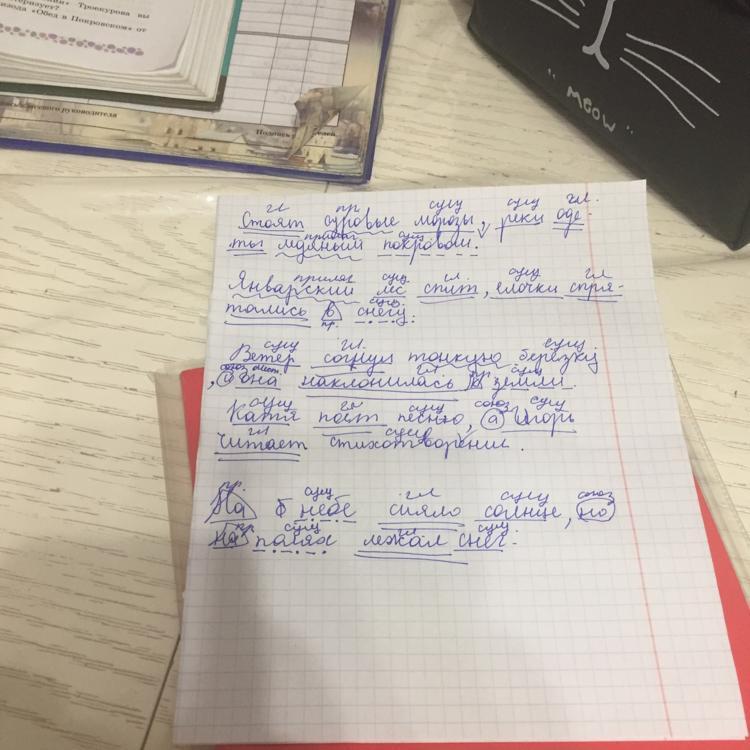 Троекурова вы
теризует?
изода «Обед в Покровском» от
руководителя
Подпись
" MEOW "
гл пр. сущ сущ гл.
Стоят суровые морозы, реки оде-
прилаг сущ
ты ледяным покровом.
прилаг сущ гл. сущ гл
Январский лес спит, елочки спря-
сущ.
тались в снегу.
пр.
сущ гл. сущ
Ветер согнул тонкую берёзку
союз мест. гл пр. сущ
, а она наклонилась к земли.
сущ гл сущ союз сущ
Катя поёт песню, а Игорь
гл сущ
читает стихотворение.
пр. сущ гл сущ союз
На небе сияло солнце, но
пр. сущ гл сущ
на полях лежал снег.